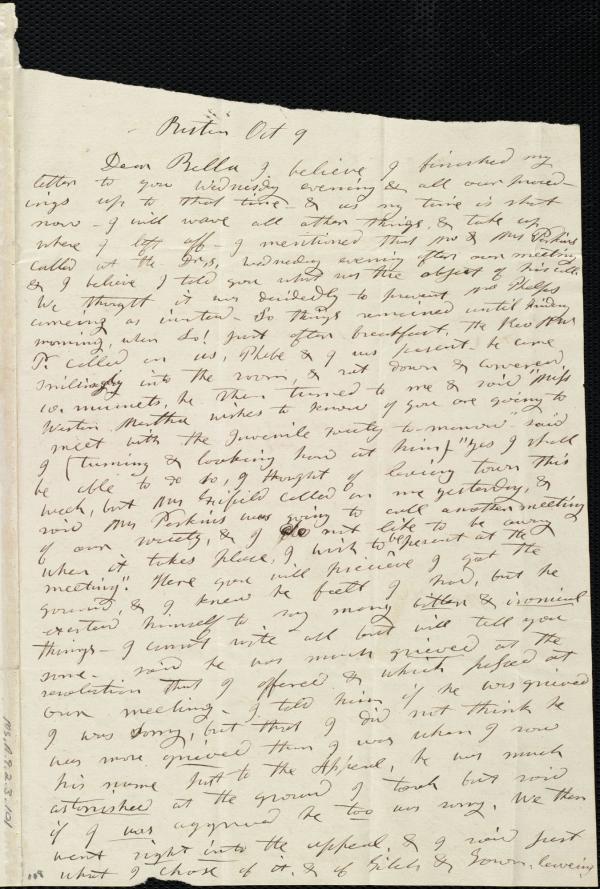 Boston Oct 9
Dear Bella I believe I finished my
letter to you Wednesday evening & all our proceed-
ings up to that time & as my time is short
now - I will wave all other things, & take up
where I left off - I mentioned that Mr & Mrs Perkins
called at the Drs, Wednesday evening after our meeting
& I believe I told you what was the object of his call.
We thought it was decidedly to prevent Mrs Phelps
comeing as invited - So things remained until friday
morning, when lo! just after breakfast, the Rev
P. called on us, Phebe & I was present - he came
smilingly into the room, & sat down & conversed
10. minuets, he then turned to me & said "Miss
Weston Martha wishes to know if you are going to
meet with the Juvenile society to-morrow" said
I (turning & looking hard at him) "yes I shall
be able to do so, I thought of leaving town this
week, but Mrs Fifield called on me yesterday, &
said Mrs Perkins was going to call another meeting
of our society, & I do not like to be away
when it takes place, I wish to be present at the
meeting". Here you will precieve I got the
ground, & I knew he felt I had, but he
exerted himself to say many bitter & ironical
things - I cannot write all but will tell you
some - said he was much grieved at the
resolution that I offered & which passed at
our meeting - I told him if he was grieved
I was sorry, but that I did not think he
was more grieved than I was when I saw
his name put to the Appeal, he was much
astonished at the ground I took but said
if I was aggrieved he too was sorry. We then
went right into the appeal, & I said just
what I chose of it, & of Fitch & Towne, leaveing
MS.A.9.2.3.101